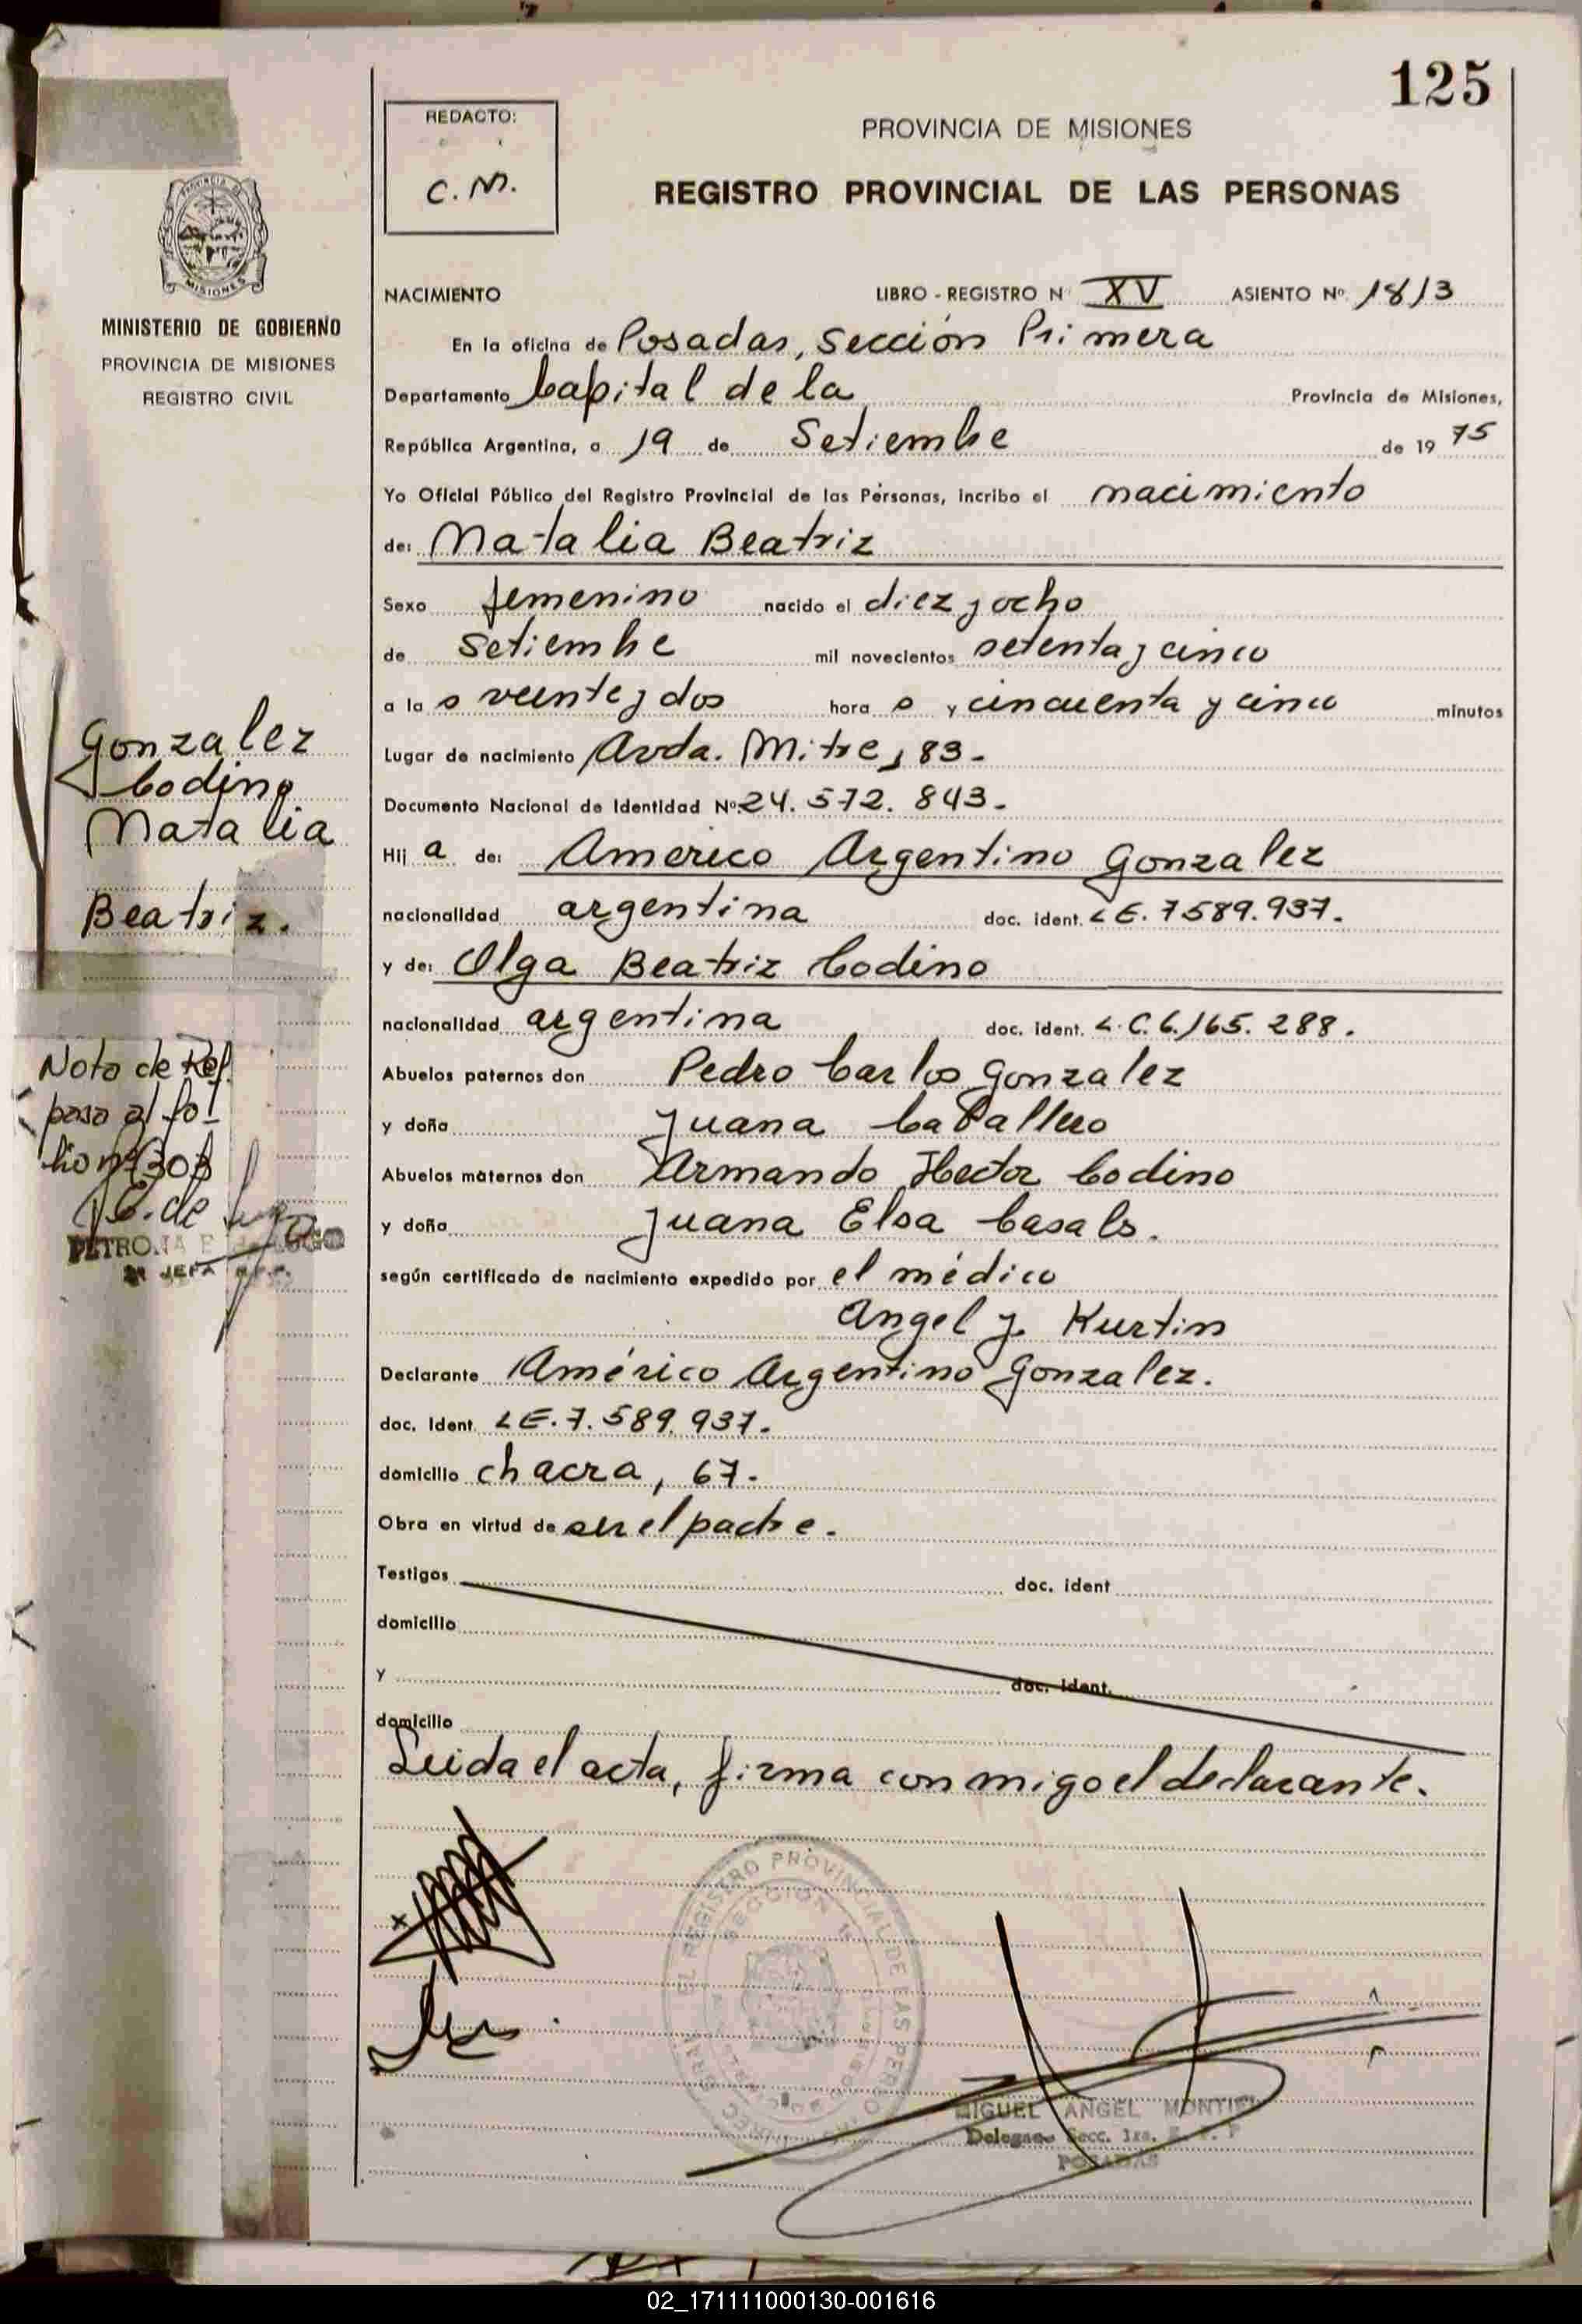 125
REDACTO:
C.M.
PROVINCIA DE MISIONES
REGISTRO PROVINCIAL DE LAS PERSONAS
MINISTERIO DE GOBIERNO
PROVINCIA DE MISIONES
REGISTRO CIVIL
NACIMIENTO LIBRO - REGISTRO N XV ASIENTO Nº 1813
En la oficina de Posadas, Sección Primera
Departamento Capital de la Provincia de Misiones,
República Argentina, a 19 de Setiembre de 1975
Yo Oficial Público del Registro Provincial de las Personas, incribo el nacimiento
de: Natalia Beatriz
Sexo femenino nacido el diez y ocho
de Setiembre mil novecientos setenta y cinco
a la s veinte y dos hora s y cincuenta y cinco minutos
Lugar de nacimiento Avda. Mitre, 83-
Documento Nacional de Identidad Nº 24.572.843-
Hij a de: Americo Argentino Gonzalez
nacionalidad argentina doc. ident. LE. 7589.937.
y de: Olga Beatriz Codino
nacionalidad argentina doc. ident. L.C. 6.165.288.
Abuelos paternos don Pedro Carlos Gonzalez
y doña Juana Caballero
Abuelos maternos don Armando Hector Codino
y doña Juana Elsa Casals.
según certificado de nacimiento expedido por el médico
Angel J. Kurtin
Declarante Américo Argentino Gonzalez.
doc. Ident. LE. 7.589.937.
domicilio chacra, 67.
Obra en virtud de ser el padre.
Testigos doc. ident
domicilio
y doc. ident.
domicilio
Leida el acta, firma conmigo el declarante.
Gonzalez
Codino
Natalia
Beatriz.
Nota de Ref.
pasa al fo
lio nº 303
PETRONA E
JEFA
EL REGISTRO PROVINCIAL DE LAS PERSO
SECCION 1ª
MIGUEL ANGEL MONTIEL
Delegado Secc. 1ra. R. P. P
POSADAS
02_171111000130-001616